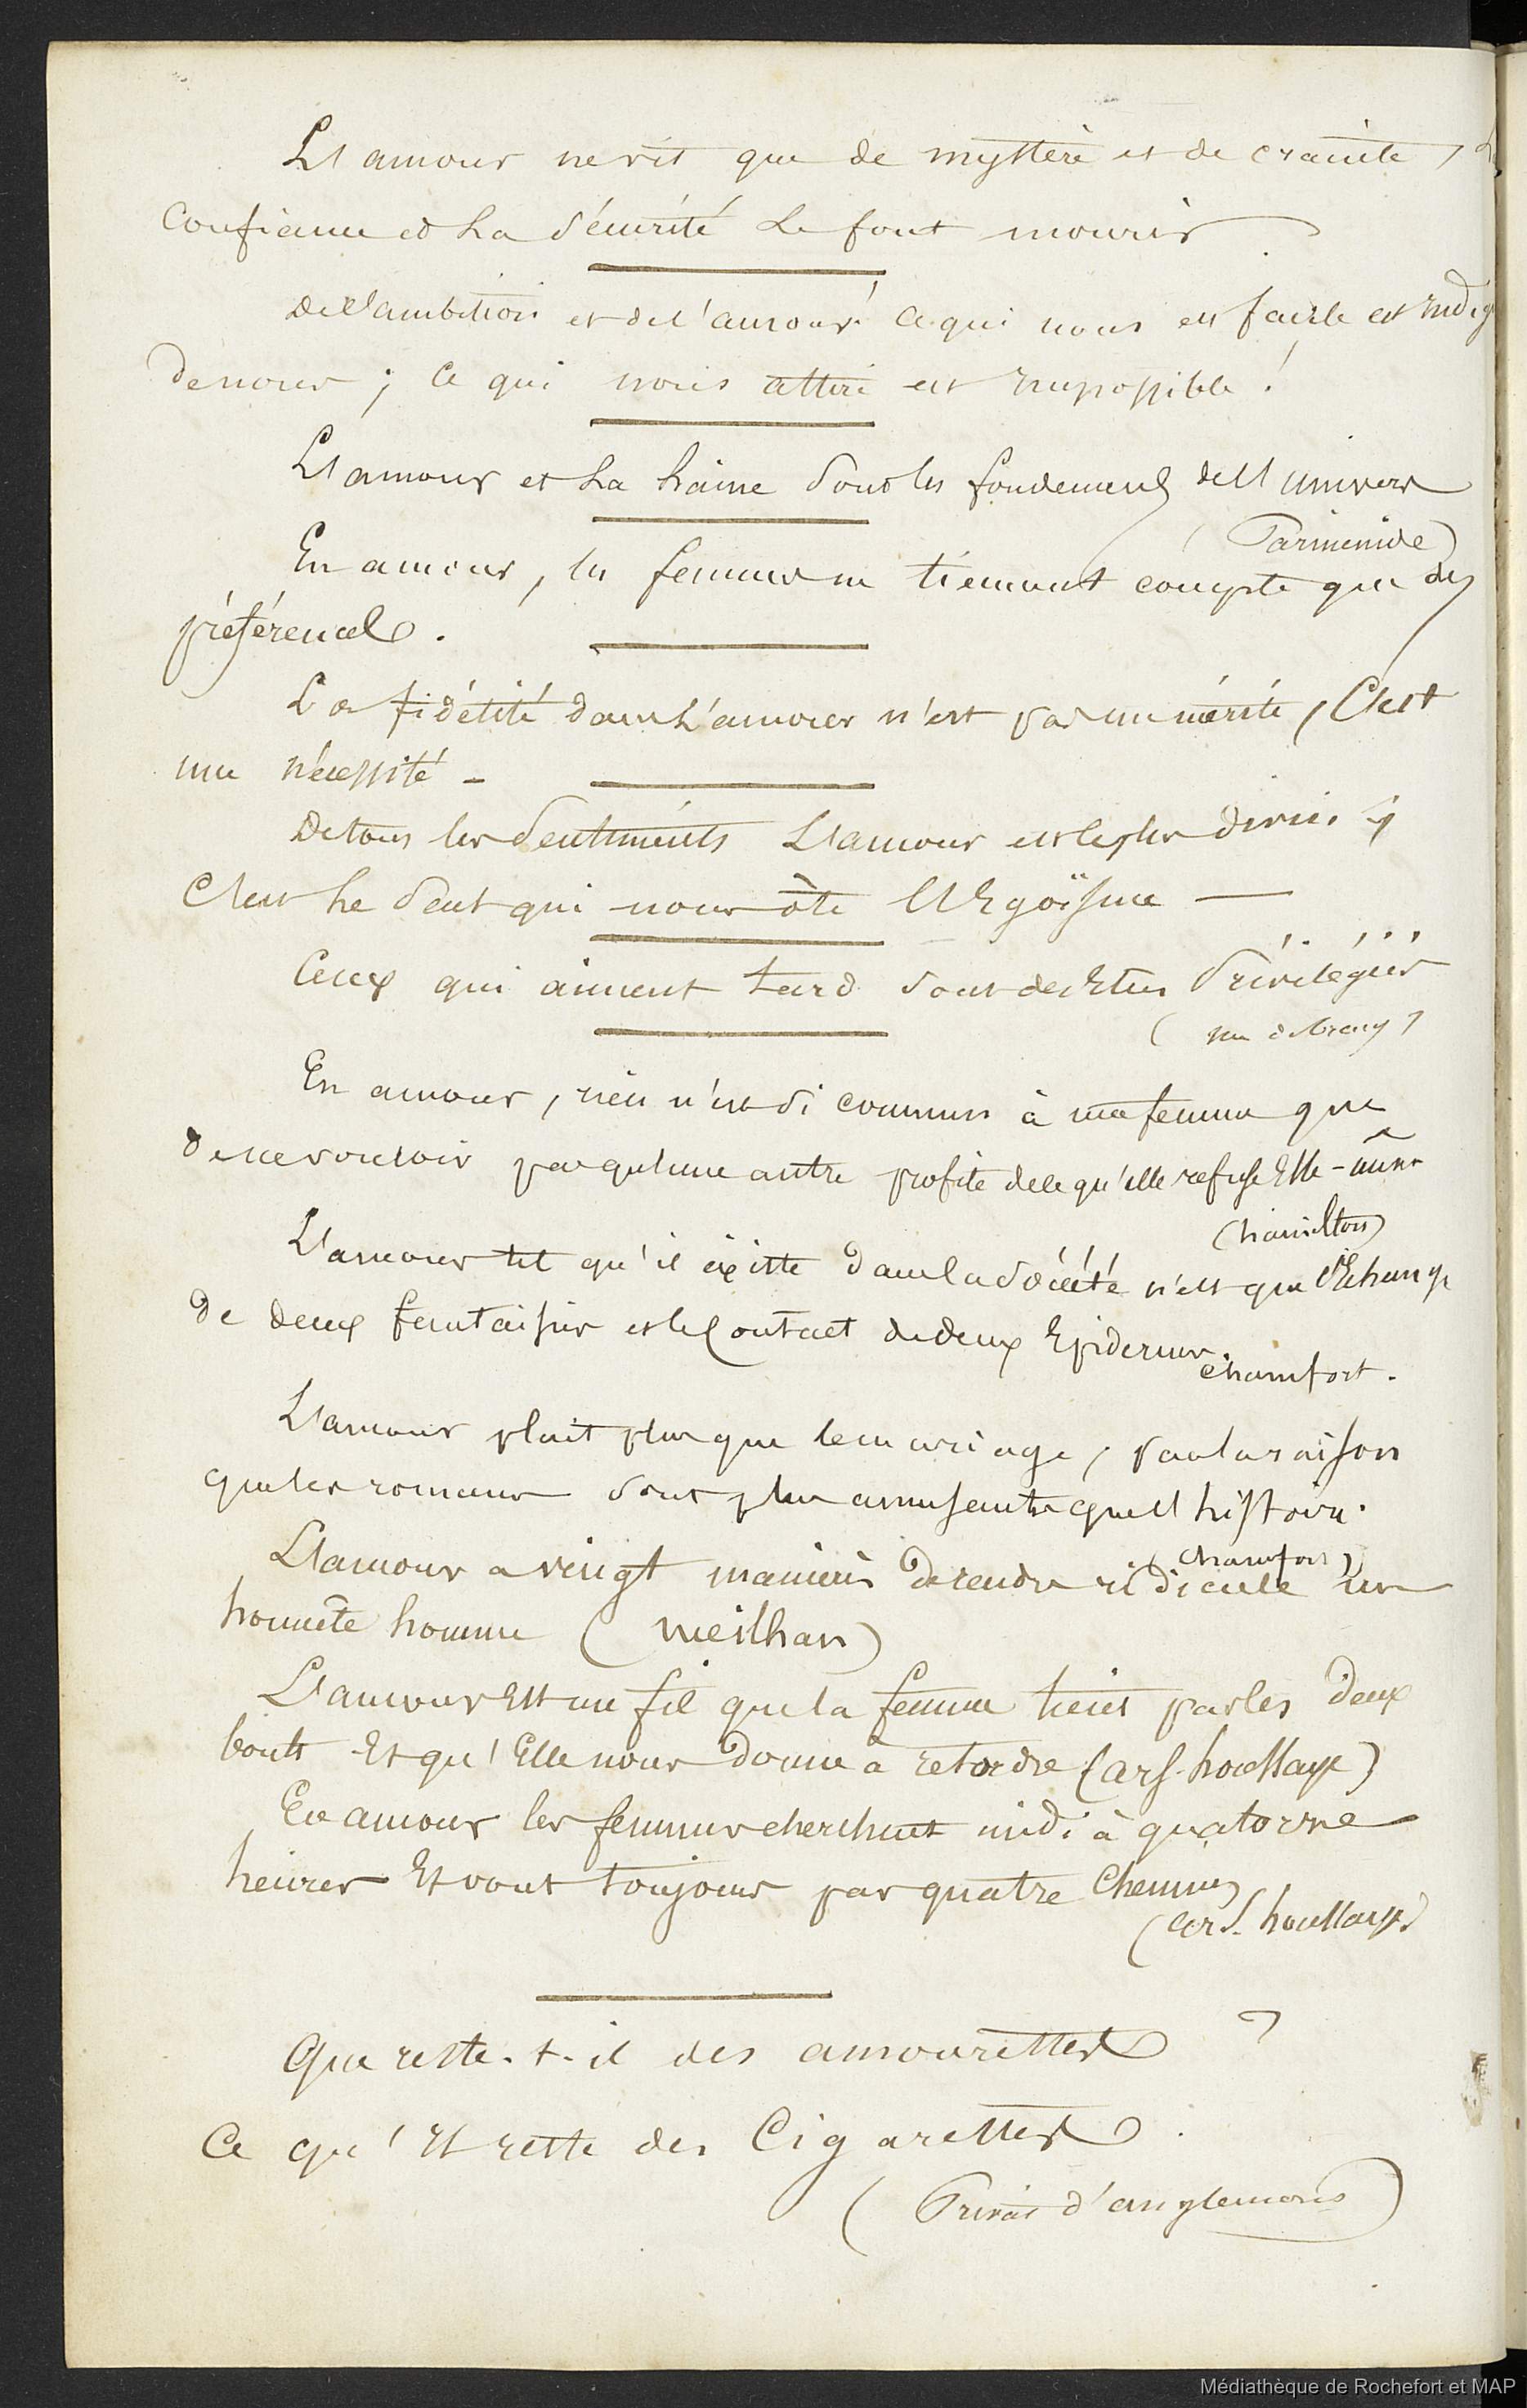 L'amour ne vit que de mystère et de crainte, L
confiance et La sécurité Le font mourir
De l'ambition et de l'amour ce qui nous est facile est Indig
de nous ; ce qui nous attire est Impossible !
L'amour et La haine sont les fondements de l'univers
(Parménide)
En amour, les femmes ne tiennent compte que des
préférences.
La fidélité dans L'amour n'est pas un mérite, C'est
une nécessité -
De tous les sentiments L'amour est le plus divin
C'est Le seul qui nous ôte l'Egoïsme —
Ceux qui aiment tard sont des Etres Privilégiés
En amour, rien n'est si commun à une femme que
de ne vouloir pas qu'une autre profite de ce qu'elle refuse Elle-même
(hamilton)
L'amour tel qu'il existe dans la société n'est que l'Echange
de deux fantaisies et le Contact de deux Epidermes.
Chamfort.
L'amour plait plus que le mariage, par la raison
que les romans sont plus amusants que l'histoire.
(Chamfort)
L'amour a vingt manières de rendre ridicule un
honnête homme (meilhan)
L'amour Est un fil que la femme tient par les deux
bouts Et qu'Elle nous donne à retordre (ars. houssaye)
En amour les femmes cherchent midi à quatorze
heures Et vont toujours par quatre Chemins
(ars. houssaye)
Que reste-t-il des amourettes ?
Ce qu'Il reste des Cigarettes.
(Privat d'anglemont)
Médiathèque de Rochefort et MAP